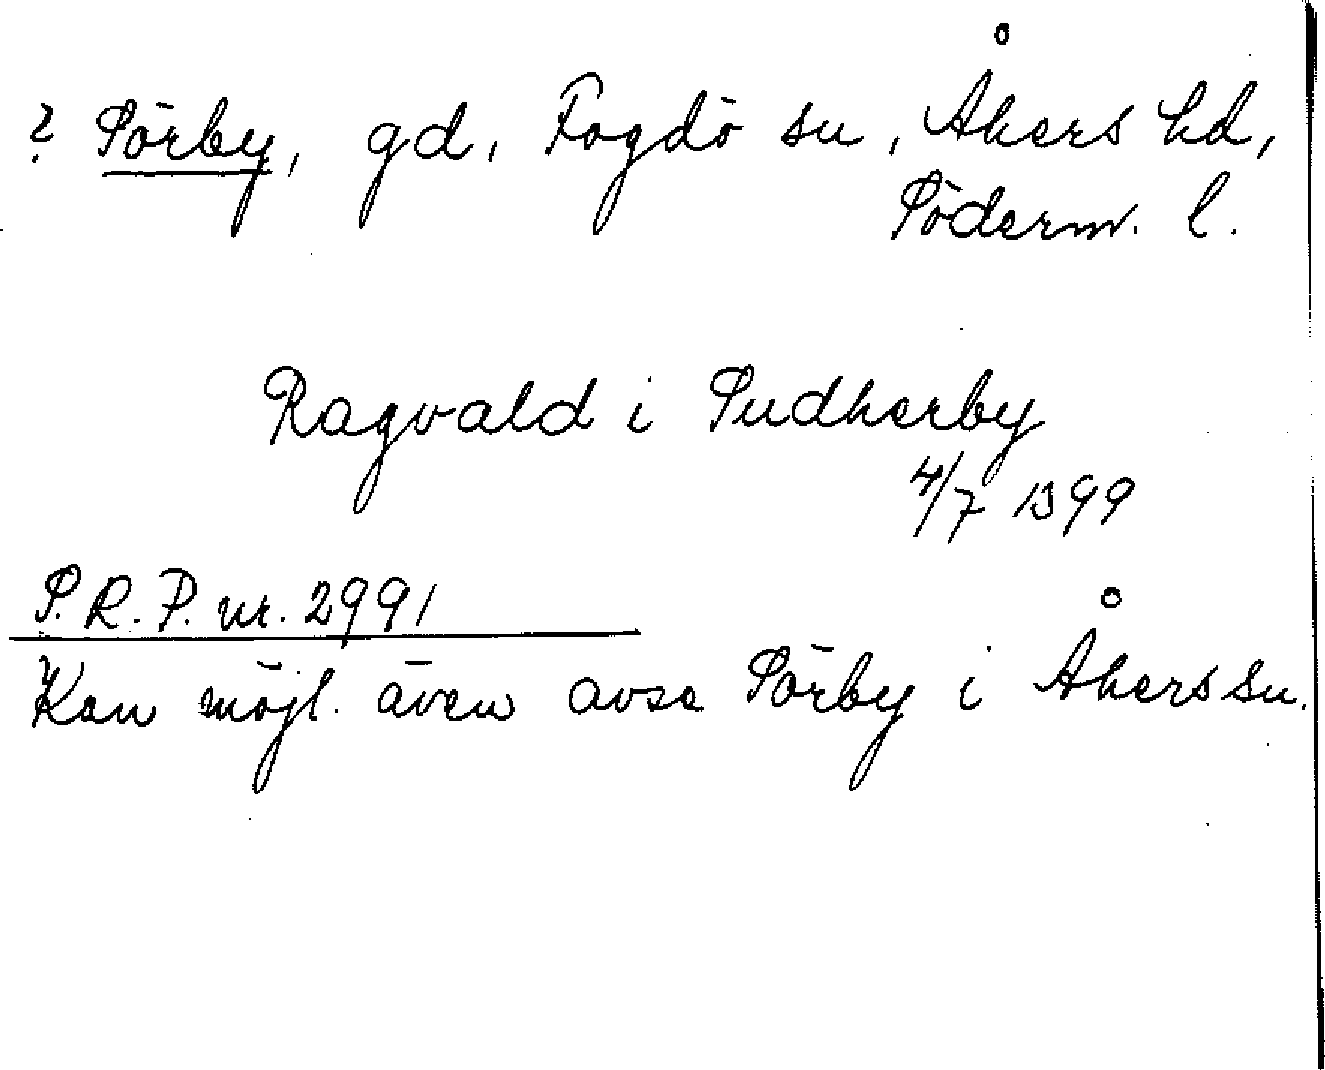 ? Sörby, gd, Fogdö sn, Åkers hd,
Söderm. l.
Ragvald i Sudherby
4/7 1399
S.R.P. nr. 2991
Kan möjl. även avse Sörby i Åkers sn.